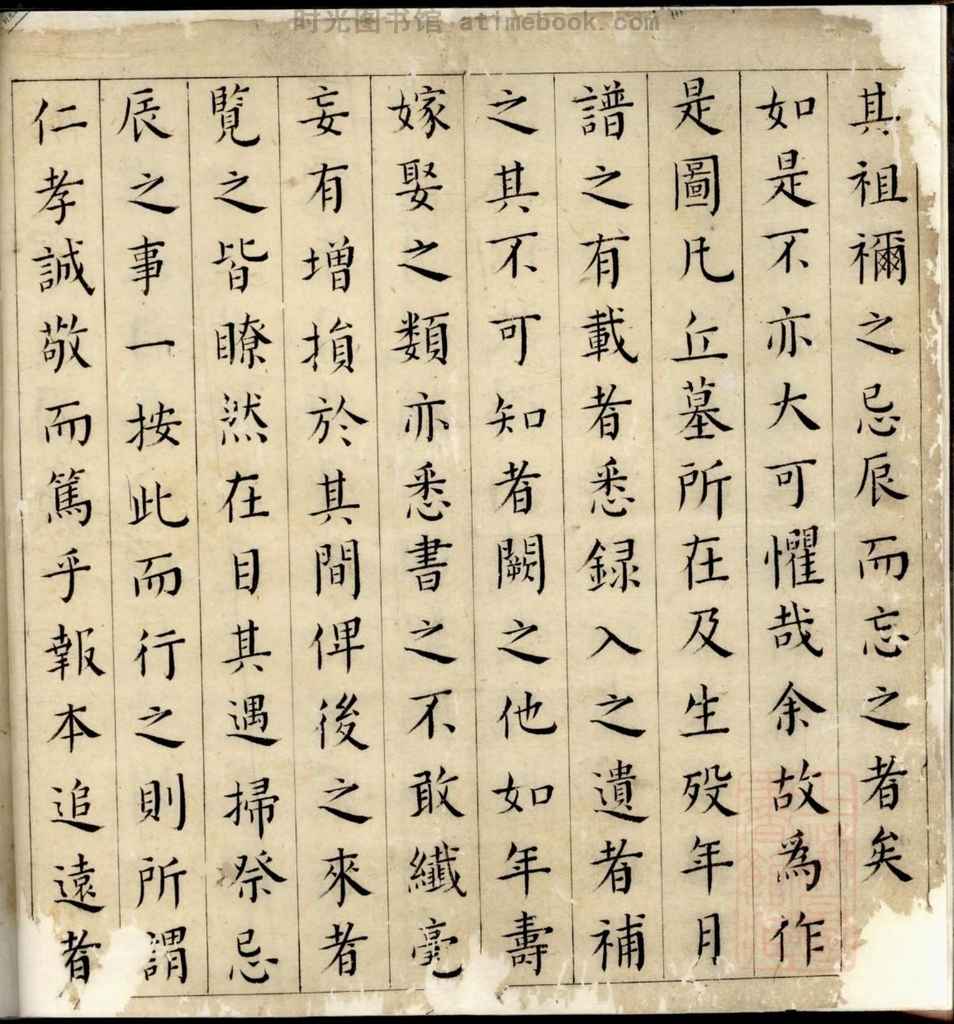 时光图书馆 atimebook.com
其祖禰之忌辰而忘之者矣
如是不亦大可懼哉余故為作
是圖凡丘墓所在及生殁年月
譜之有載者悉録入之遺者補
之其不可知者闕之他如年壽
嫁娶之類亦悉書之不敢纖毫
妄有增損於其間俾後之來者
覽之皆瞭然在目其遇掃祭忌
辰之事一按此而行之則所謂
仁孝誠敬而篤乎報本追遠者